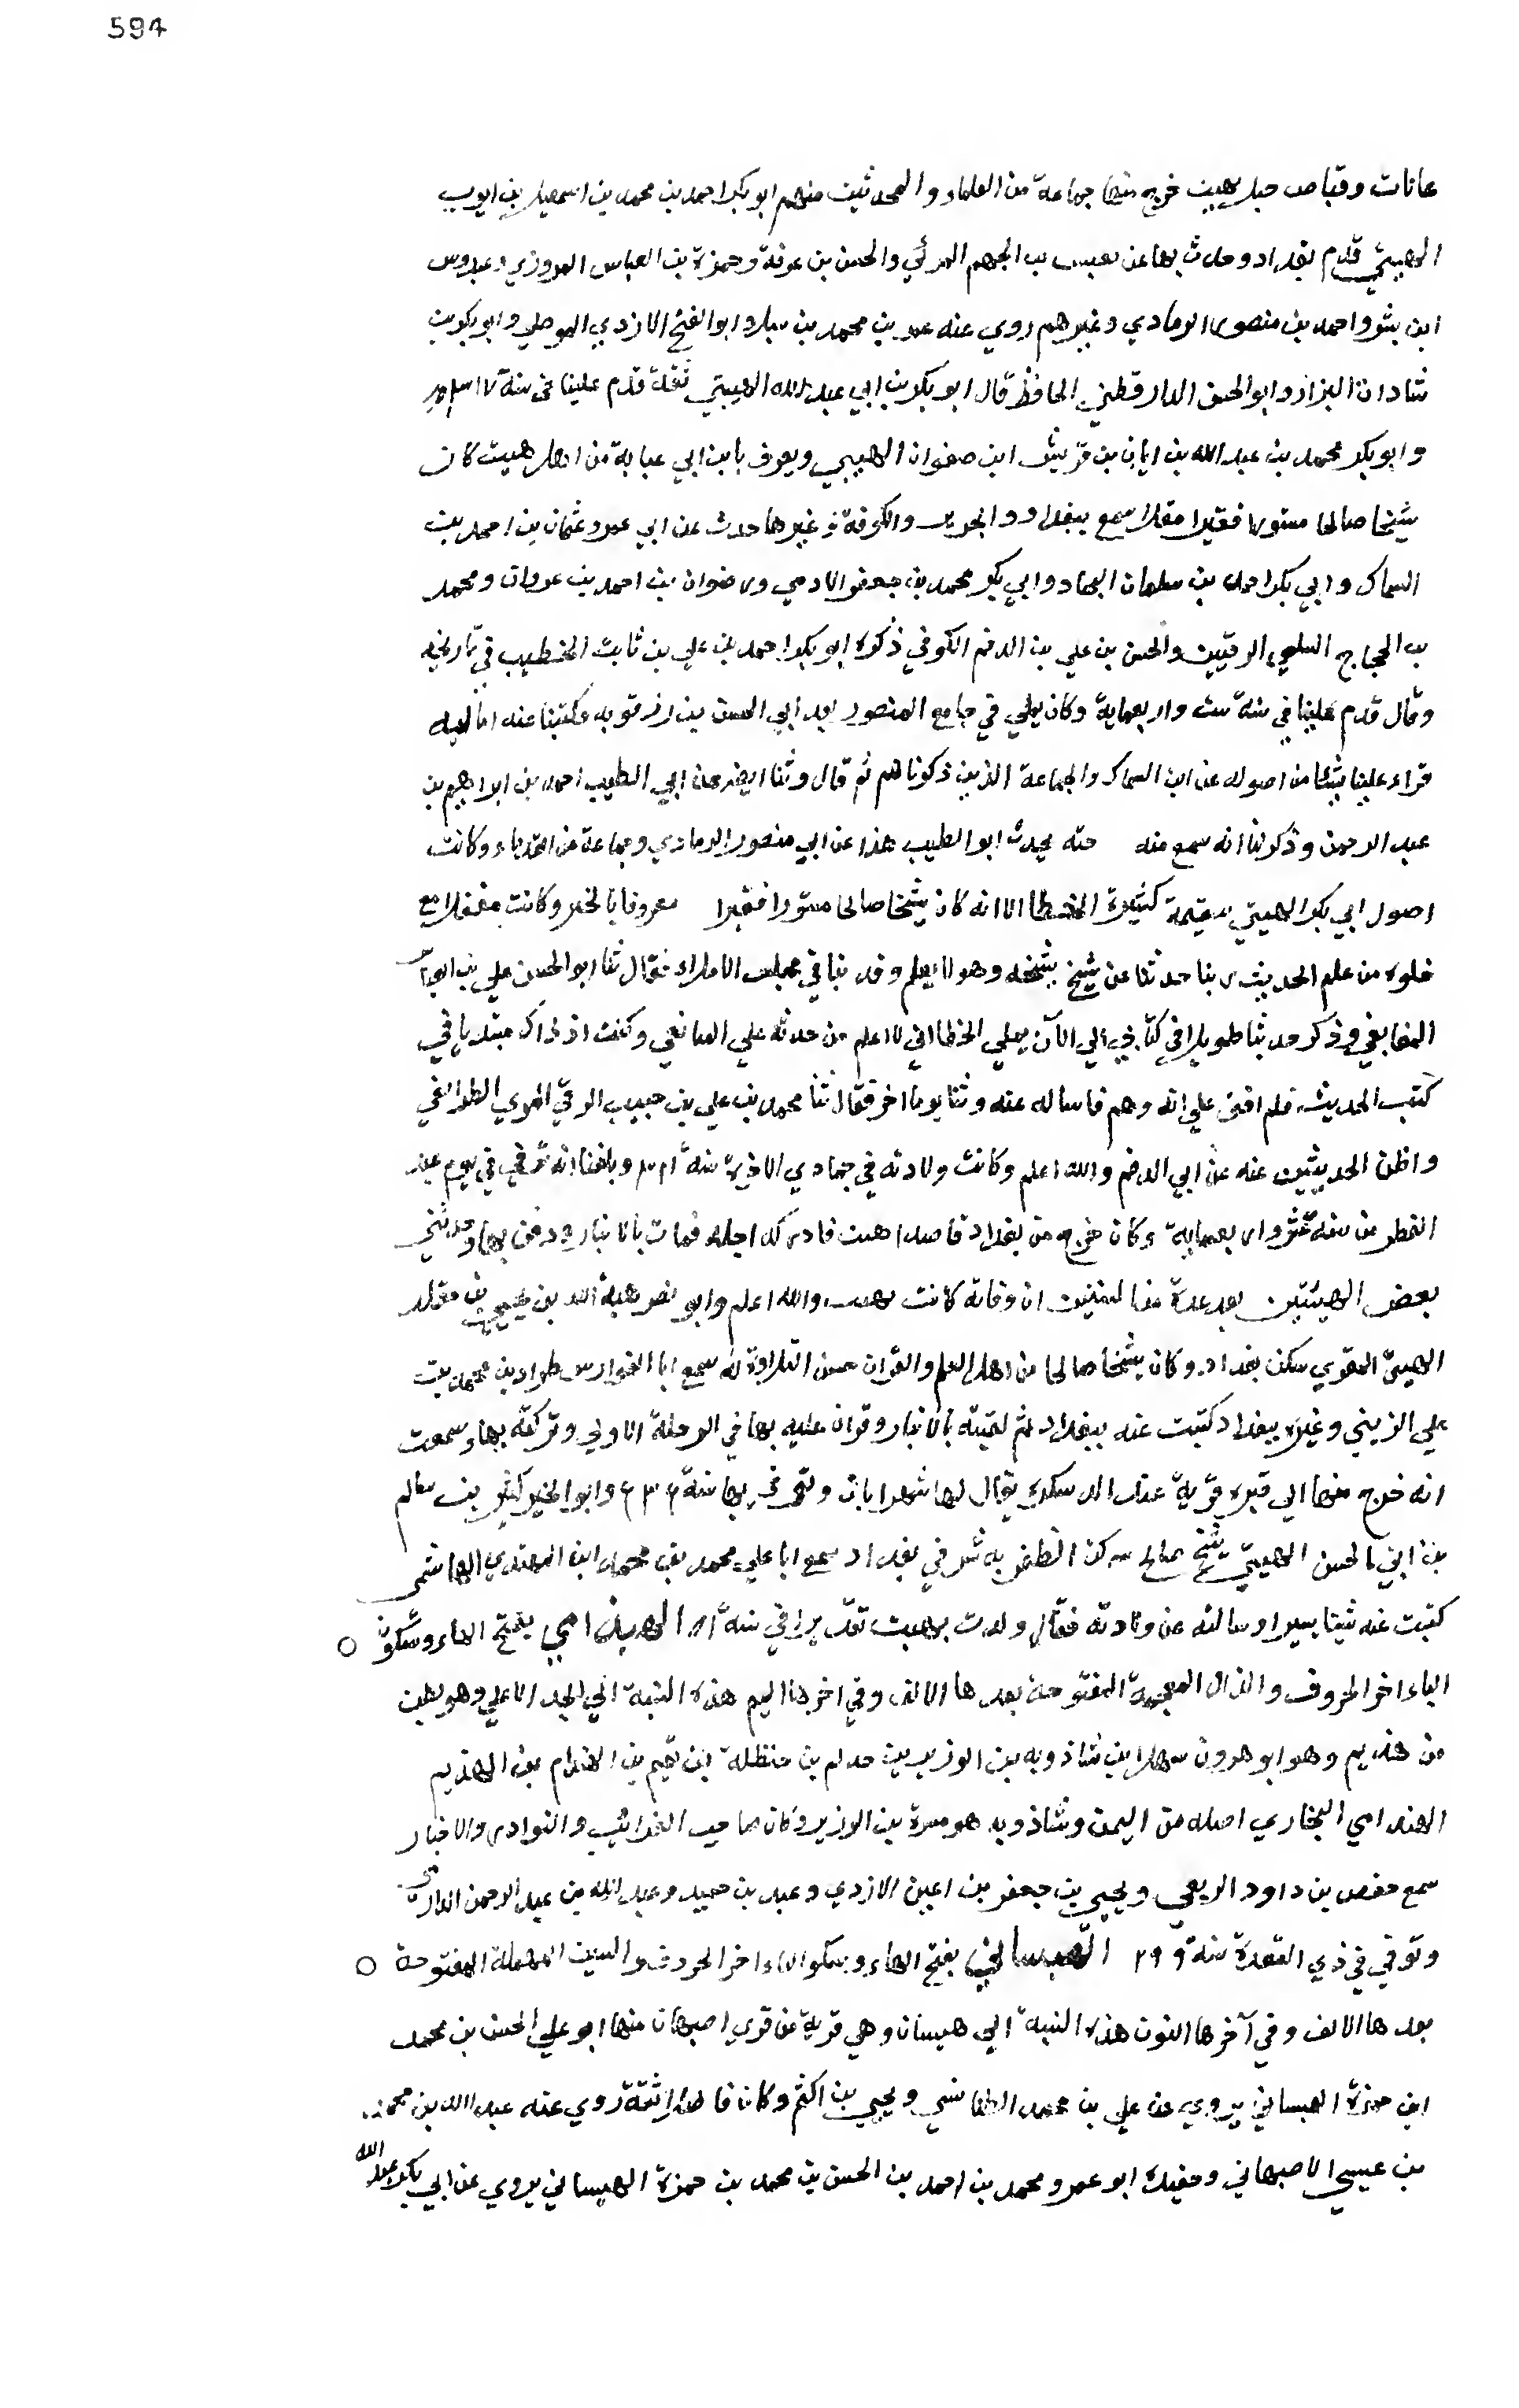 594
عانات وقباص حبل بهيت خرج منها جماعة من العلماء والمحدثين منهم ابو بكر احمد بن محمد بن اسمعيل بن ايوب
الهيتي قدم بغداد وحدث بها عن يعيش بن الجهم والحسن بن عرفة وحمزة بن العباس المروزي وعبدوس
ابن بشر واحمد بن منصور الرمادي وغيرهم روي عنه محمد بن وابو الفتح الازدي الموصلي وابو بكر بن
شاذان البزاز وابو الحسن الدارقطني الحافظ قال ابو بكر بن ابي عبد الله الهيتي ثقة قدم علينا في سنة
وابو بكر محمد بن عبد الله بن ابان بن قريش ابن صفوان الهيتي ويعرف بابن ابي عباية من اهل هيت كان
شيخا صالحا مستورا فقيرا مقلا سمع ببغداد و والكوفة وغيرها حدث عن ابي عمرو عثمان بن احمد بن
السماك وابي بكر احمد بن سلمان النجاد وابي بكر محمد بن جعفر الادمي ورضوان بن احمد بن ومحمد
بن الحجاج السلمي الرقيين والحسن بن علي بن الكوفي ذكره ابو بكر احمد بن علي بن ثابت الخطيب في تاريخه
وقال قدم علينا في سنة ست واربعماية وكان يملي في جامع المنصور بعد ابي الحسن بن رزقويه فكتبنا عنه اماليه
قراء علينا شيئا من اصوله عن ابن السماك والجماعة الذين ذكرناهم ثم قال وثنا ايضا عن ابي الطيب احمد بن ابراهيم بن
عبد الرحمن وذكر لنا انه سمع منه يحدث ابو الطيب هذا عن ابي منصور الرمادي وجماعة من القدماء وكانت
اصول ابي بكر الهيتي سقيمة كثيرة الخطا الا انه كان شيخا صالحا مستورا فقيرا معروفا بالخير وكانت مغفلا مع
خلوه من علم الحديث ربنا حدثنا عن شيخ شيخه وهو لا يعلم في مجلس الاملاء فقال ثنا ابو الحسن علي بن
وذكر حديثا طويلا في كتابي الي الآن يملي الخطا اني لا اعلم من حدثه علي وكنت اذ ذاك مبتديا في
كتب الحديث فلم علي انه وهم فاساله عنه وثنا يوما اخر فقال ثنا محمد بن علي بن حبيب الرقي الطرائفي
واظن الحديثين عنه عن ابي والله اعلم وكانت ولادته في جمادي الاخرة سنة وبلغنا انه توفي في يوم عيد
الفطر من سنة عشر واربعماية وكان خرج من بغداد قاصدا هيت فادركه اجله فمات بالانبار ودفن بها وحدثني
بعض الهيتيين بعد عدة من السنين ان وفاته كانت بهيت والله اعلم وابو نصر هبة الله بن بن مقلد
الهيتي المقري سكن بغداد وكان شيخا صالحا من اهل العلم والقران حسن التلاوة له سمع ابا الفوارس طراد بن محمد بن
علي الزينبي وغيره ببغداد كتبت عنه ببغداد ثم لقيته بالانبار وقرات عليه بها في الرحلة الاولي وتركته بها وسمعت
انه خرج منها الي قبره قرية عند الدسكره يقال لها شهرابان وتوفي بها سنة وابو الخير كثير بن سالم
بن ابي الحسن الهيتي شيخ صالح سكن الظفريه شرقي بغداد سمع ابا علي محمد بن محمد ابن المهتدي الهاشمي
كتبت عنه شيئا يسيرا وسالته عن ولادته فقال ولدت بهيت تقديرا في سنة الهيذامي بفتح الهاء وسكون
الياء اخر الحروف والذال المعجمة المفتوحة بعدها الالف وفي اخرها الميم هذه النسبة الي الجد الاعلي وهو بطن
من هذيم وهو ابو هرون سهل بن شاذويه بن الوزير بن حذلم بن حنظلة ابن تميم بن الهذام بن الهذيم
الهذامي البخاري اصله من اليمن وشاذويه هو مسرة بن الوزير وكان صاحب الغرائب والنوادر والاخبار
سمع حفص بن داود الربعي ويحيي بن جعفر بن اعين الازدي وعبد بن حميد وعبد الله بن عبد الرحمن الدارمي
وتوفي في ذي القعدة سنة ٢٩٩ الهيساني بفتح الهاء وسكون الياء اخر الحروف والسين المهملة المفتوحة
بعدها الالف وفي آخرها النون هذه النسبة الي هيسان وهي قرية من قري اصبهان منها ابو علي الحسن بن محمد
ابن حمزة الهيساني يروي عن علي بن محمد الطنافسي ويحيي بن اكثم وكان فاضلا ثقة روي عنه عبد الله بن محمد
بن عيسي الاصبهاني وحفيده ابو عمرو محمد بن احمد بن الحسن بن محمد بن حمزة الهيساني يروي عن ابي بكر عبد الله